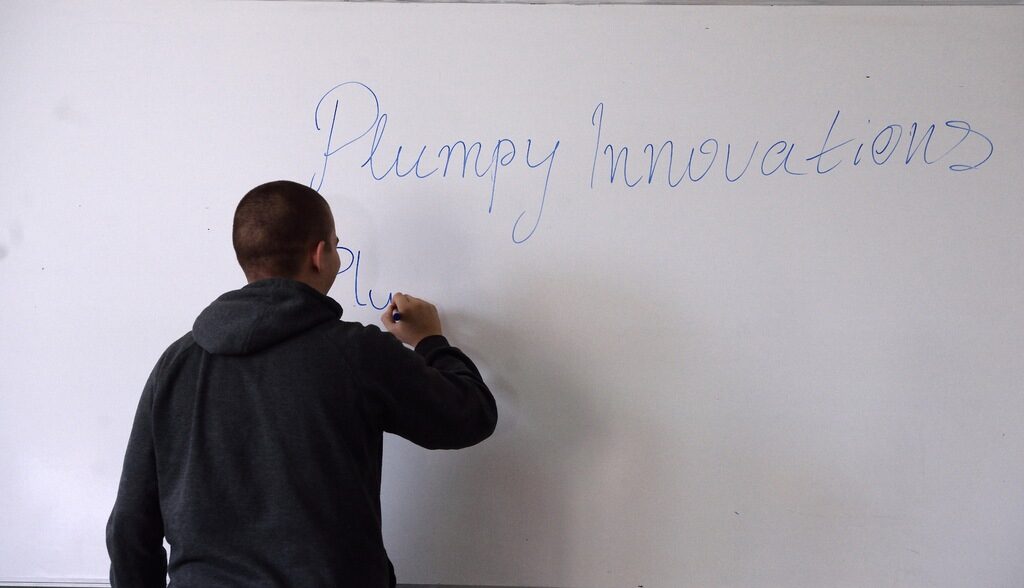 Plumpy Innovations
Plu